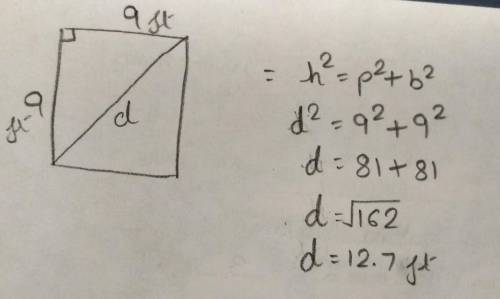 9 ft
9 ft
d
= h² = p² + b²
d² = 9² + 9²
d = 81 + 81
d = √162
d = 12.7 ft